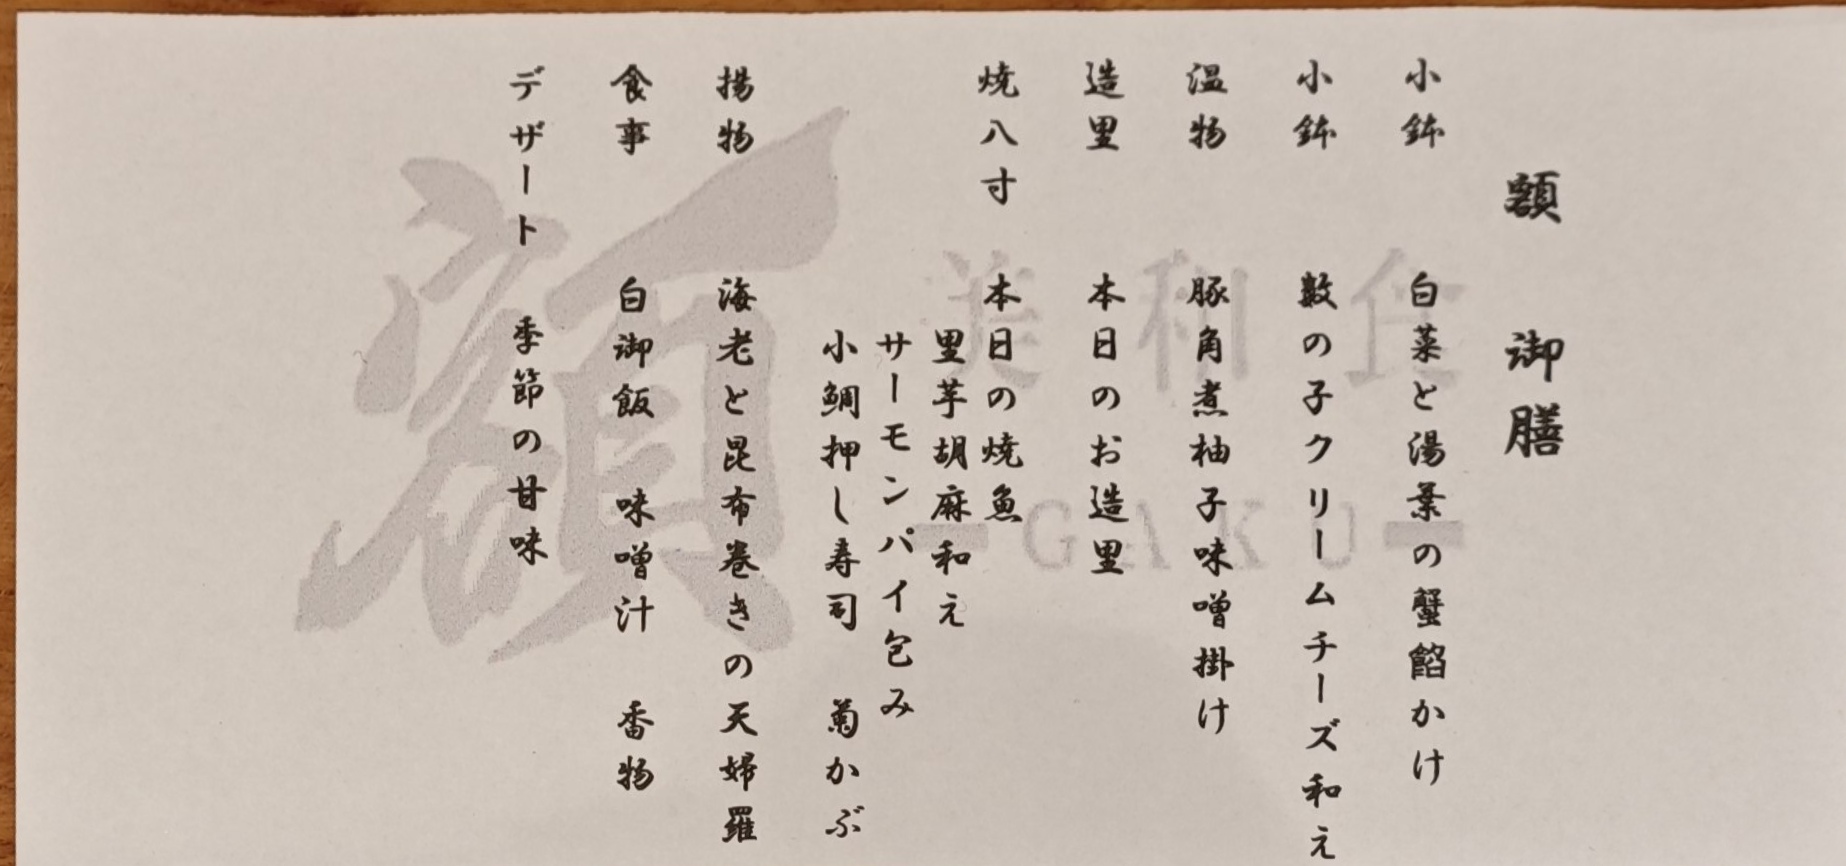 額 御膳
小鉢 白菜と湯葉の蟹餡かけ
小鉢 数の子クリームチーズ和え
温物 豚角煮柚子味噌掛け
造里 本日のお造里
焼八寸 本日の焼魚
里芋胡麻和え
サーモンパイ包み
小鯛押し寿司 菊かぶ
揚物 海老と昆布巻きの天婦羅
食事 白御飯 味噌汁 香物
デザート 季節の甘味
額
美和食
GAKU